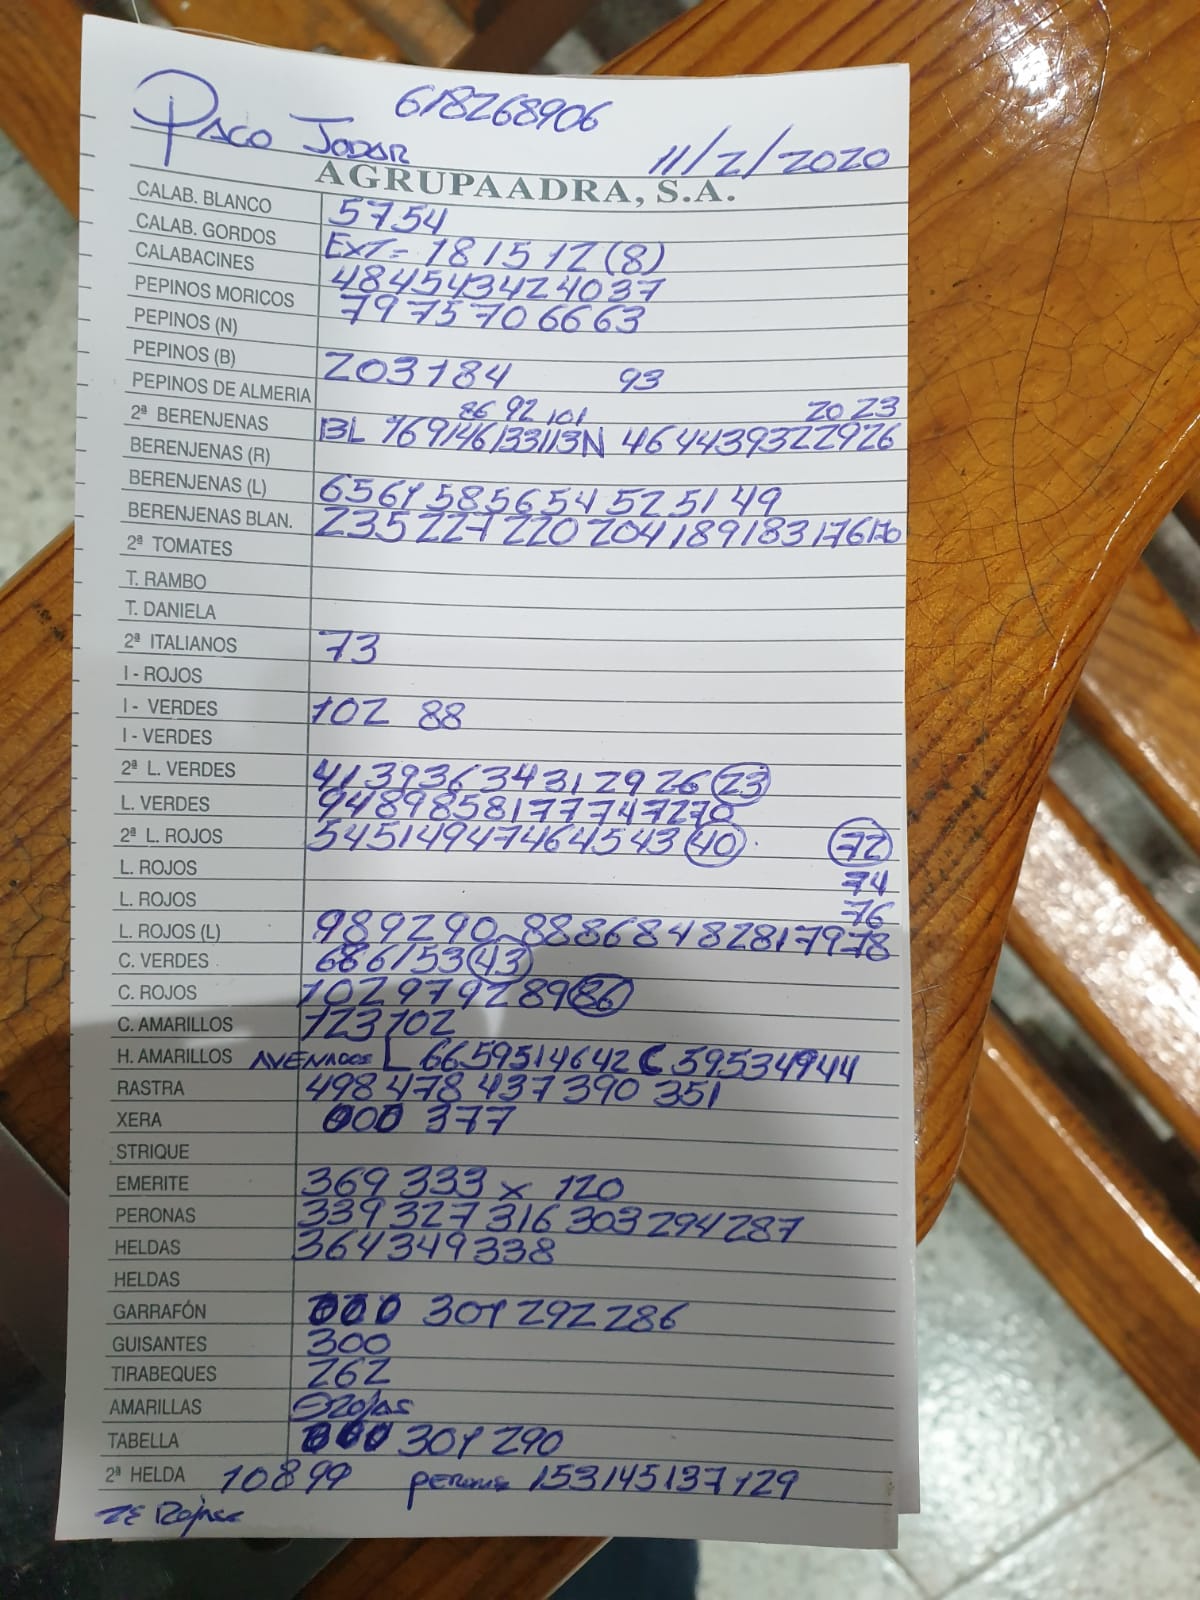 618268906
PACO JODAR 11/2/2020
AGRUPAADRA, S.A.
CALAB. BLANCO 5754
CALAB. GORDOS EXT= 18 15 12 (8)
CALABACINES 48 45 43 42 40 37
PEPINOS MORICOS 79 75 70 66 63
PEPINOS (N)
PEPINOS (B) 203 184 93
PEPINOS DE ALMERIA 86 92 101 20 23
2ª BERENJENAS BL 169 146 133 113 N 46 44 39 32 29 26
BERENJENAS (R)
BERENJENAS (L) 65 61 58 56 54 52 51 49
BERENJENAS BLAN. 235 227 220 204 189 183 176 170
2ª TOMATES
T. RAMBO
T. DANIELA
2ª ITALIANOS 73
I - ROJOS
I - VERDES 102 88
I - VERDES
2ª L. VERDES 41 39 36 34 31 29 26 23
L. VERDES 94 89 85 81 77 74 72 70
2ª L. ROJOS 54 51 49 47 46 45 43 40 72
L. ROJOS 74
L. ROJOS 76
L. ROJOS (L) 98 92 90 88 86 84 82 81 79 78
C. VERDES 68 61 53 43
C. ROJOS 102 97 92 89 86
C. AMARILLOS 123 102
H. AMARILLOS AVENADOS L 66 59 51 46 42 C 59 53 49 44
RASTRA 498 478 437 390 351
XERA 000 377
STRIQUE
EMERITE 369 333 x 120
PERONAS 339 327 316 303 294 287
HELDAS 364 349 338
HELDAS
GARRAFÓN 000 301 292 286
GUISANTES 300
TIRABEQUES 262
AMARILLAS
TABELLA 000 301 290
2ª HELDA 108 99 perona 153 145 137 129